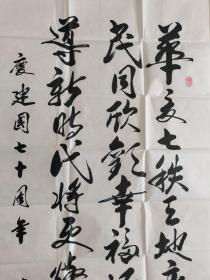 華夏七秩天地
民同欣歡幸福
導新時代將更
慶建國七十周年